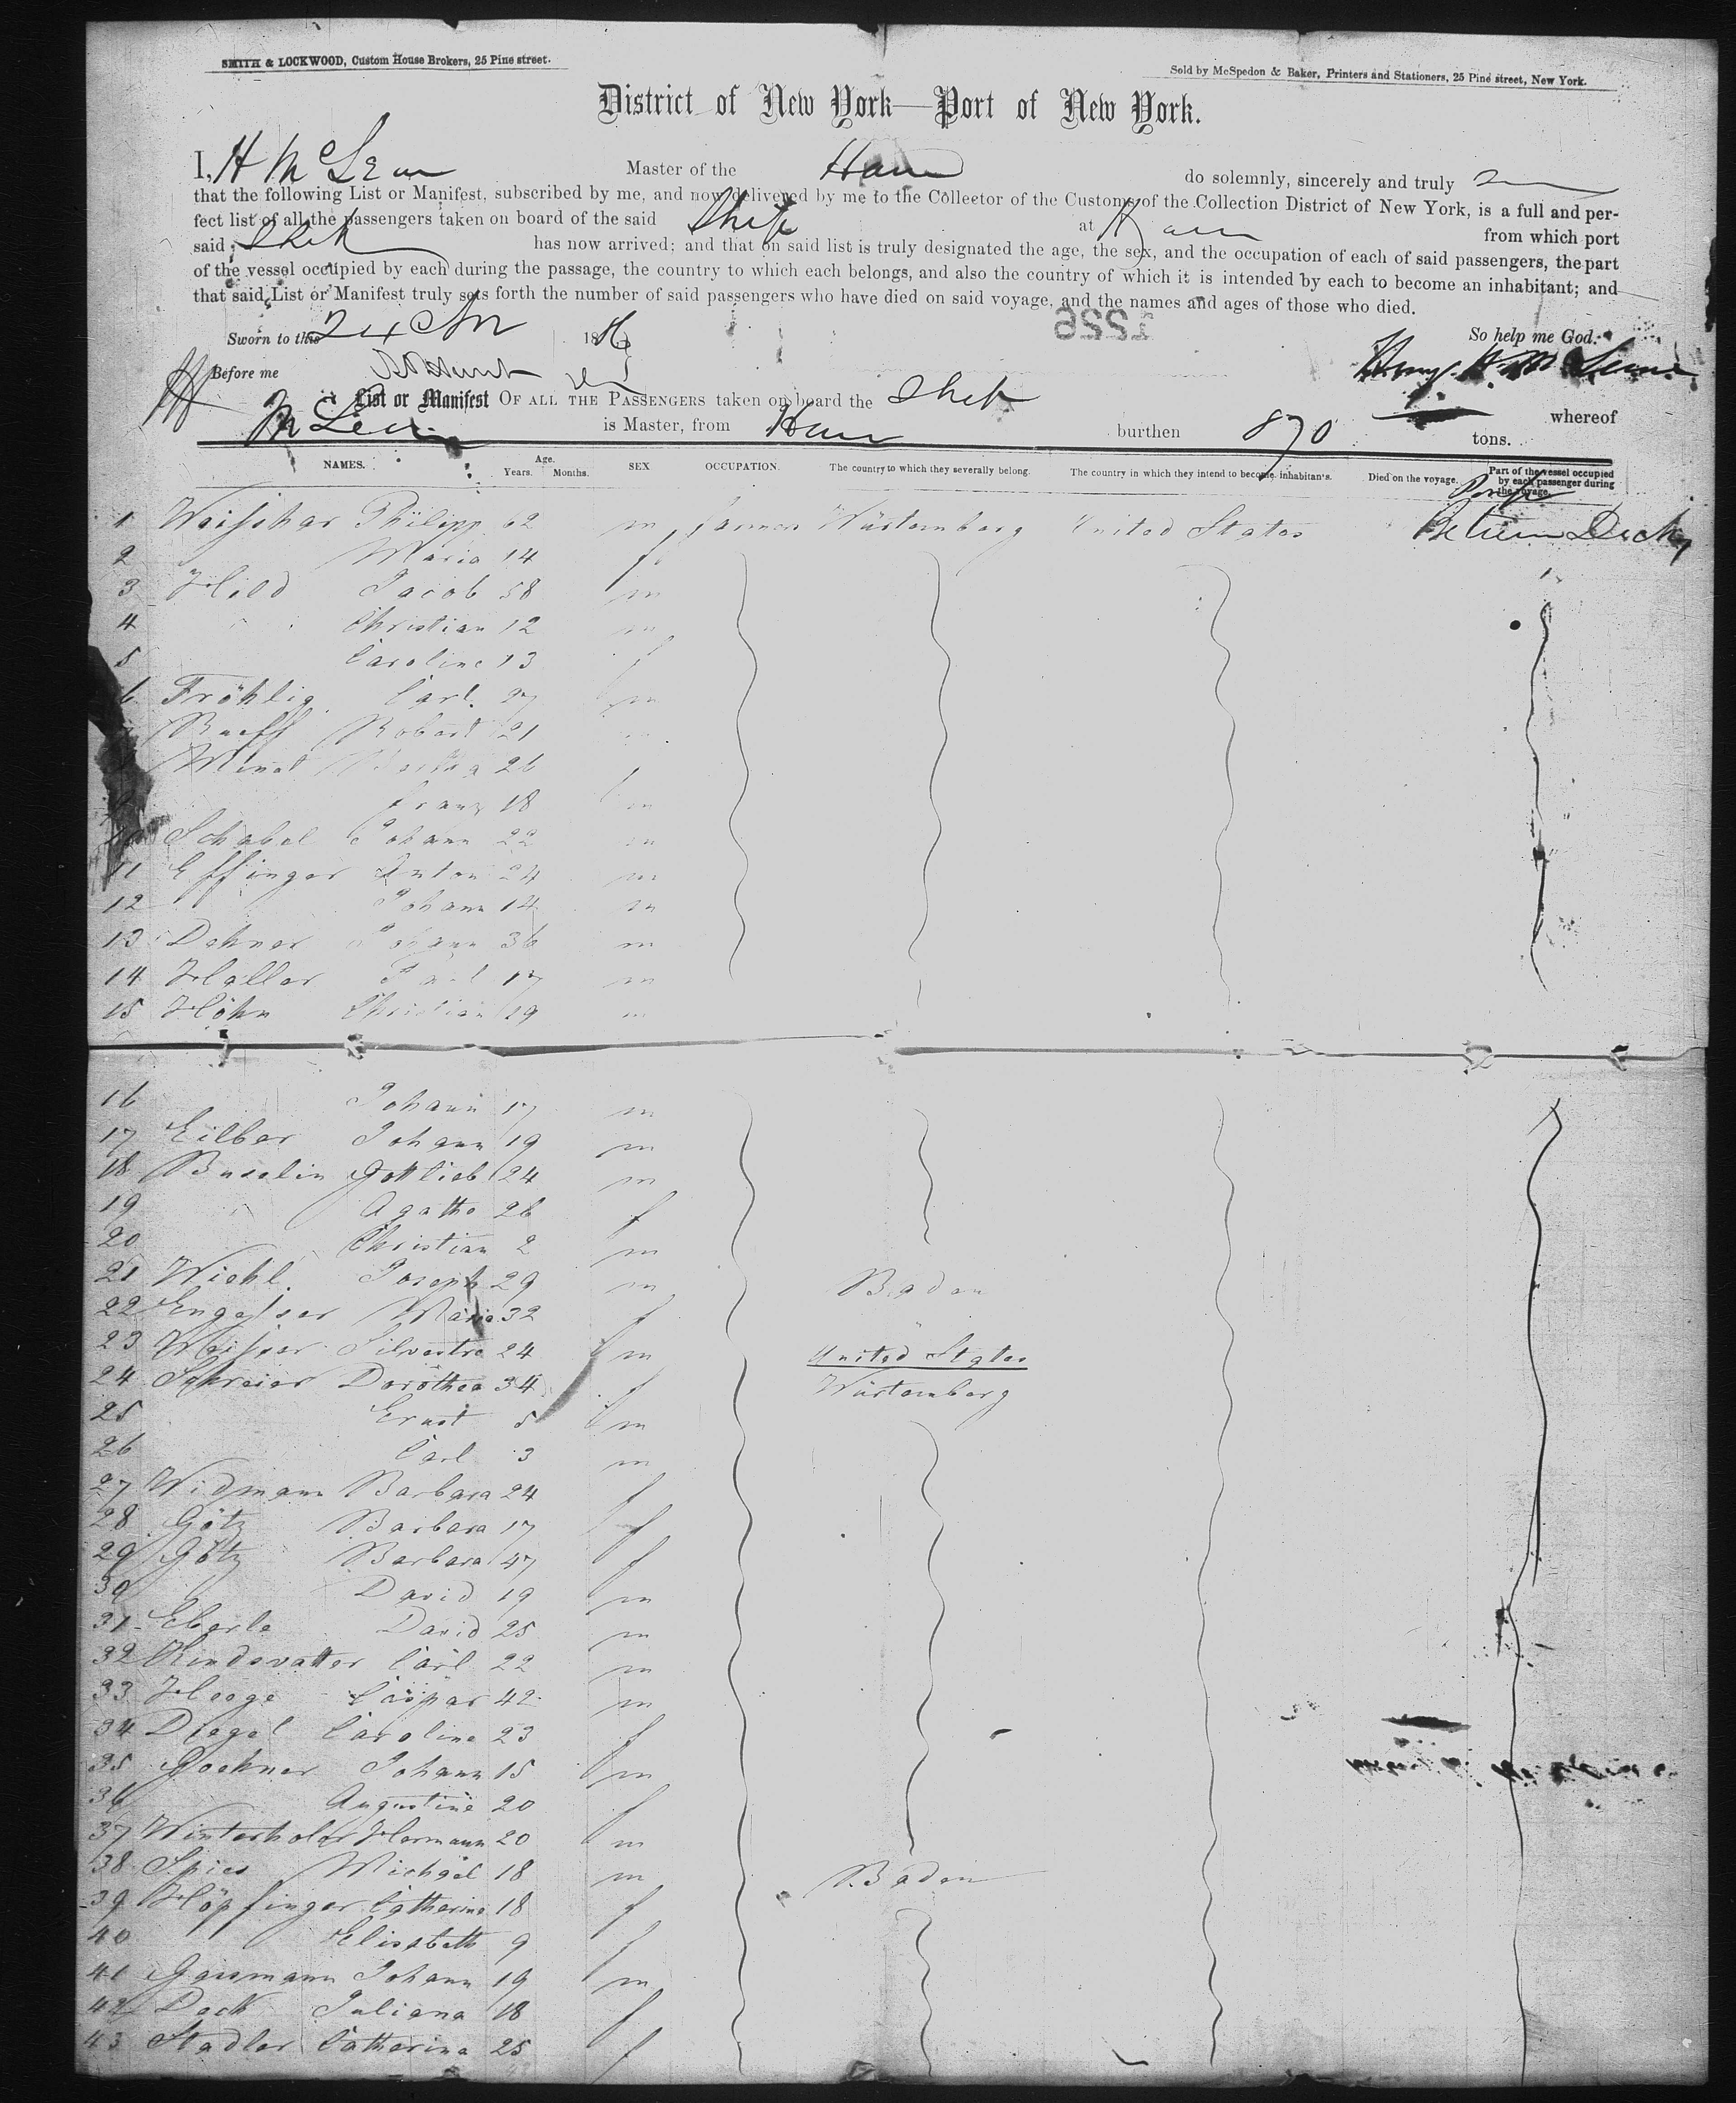 SMITH & LOCKWOOD, Custom House Brokers, 25 Pine street.
Sold by McSpedon & Baker, Printers and Stationers, 25 Pine street, New York.
District of New York—Port of New York.
I, H Mc Lean Master of the do solemnly, sincerely and truly
that the following List or Manifest, subscribed by me, and now delivered by me to the Collector of the Customs of the Collection District of New York, is a full and per-
fect list of all the passengers taken on board of the said Ship at from which port
said Ship has now arrived; and that on said list is truly designated the age, the sex, and the occupation of each of said passengers, the part
of the vessel occupied by each during the passage, the country to which each belongs, and also the country of which it is intended by each to become an inhabitant; and
that said List or Manifest truly sets forth the number of said passengers who have died on said voyage, and the names and ages of those who died.
Sworn to this 24 18 So help me God.
Before me
List or Manifest OF ALL THE PASSENGERS taken on board the Ship whereof
McLean is Master, from burthen 870 tons.
NAMES. Age. Years. Months. SEX OCCUPATION. The country to which they severally belong. The country in which they intend to become inhabitan's. Died on the voyage. Part of the vessel occupied by each passenger during the voyage.
1 Philipp 62 m farmer Würtemberg United States Between Deck
2 Maria 14 f
3 Hild Jacob 58 m
4 Christian 12 m
5 Caroline 13 f
6 Fröhlig Carl 27 m
Robert 21
26
Franz 18 m
10 Schabel Johann 22 m
11 Effinger Anton 24 m
12 Johann 14 m
13 Dehner Johann 36 m
14 Haller 17 m
15 Höhn Christian 19 m
16 Johann 17 m
17 Eilber Johann 19 m
18 Buselin Gottlieb 24 m
19 Agatha 26 f
20 Christian 2 m
21 Wiehl Joseph 29 m Baden
22 Maria 32 f
23 Silvestre 24 m United States
24 Schreier Dorothea 34 f Würtemberg
25 Ernst 5 m
26 Carl 3 m
27 Widmann Barbara 24 f
28 Götz Barbara 17 f
29 Götz Barbara 47 f
30 David 19 m
31 Eberle David 25 m
32 Kindsvatter Carl 22 m
33 Hooge Caspar 42 m
34 Diegel Caroline 23 f
35 Goehner Johann 15 m
36 Augustine 20 f
37 Winterholer Hermann 20 m
38 Spies Michael 18 m Baden
39 Höpfinger Catherina 18 f
40 Elisabeth 9 f
41 Gassmann Johann 19 m
42 Dock Juliana 18 f
43 Stadler Catherina 25 f